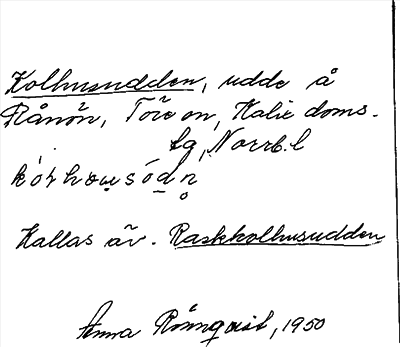 Kolhusudden, udde å
Rånön, Töre sn, Kalix doms-
sg, Norrb. l
kó̄rhωu̯sódn̥
Kallas äv. Raskkolhusudden
Anna Rönnqvist, 1950